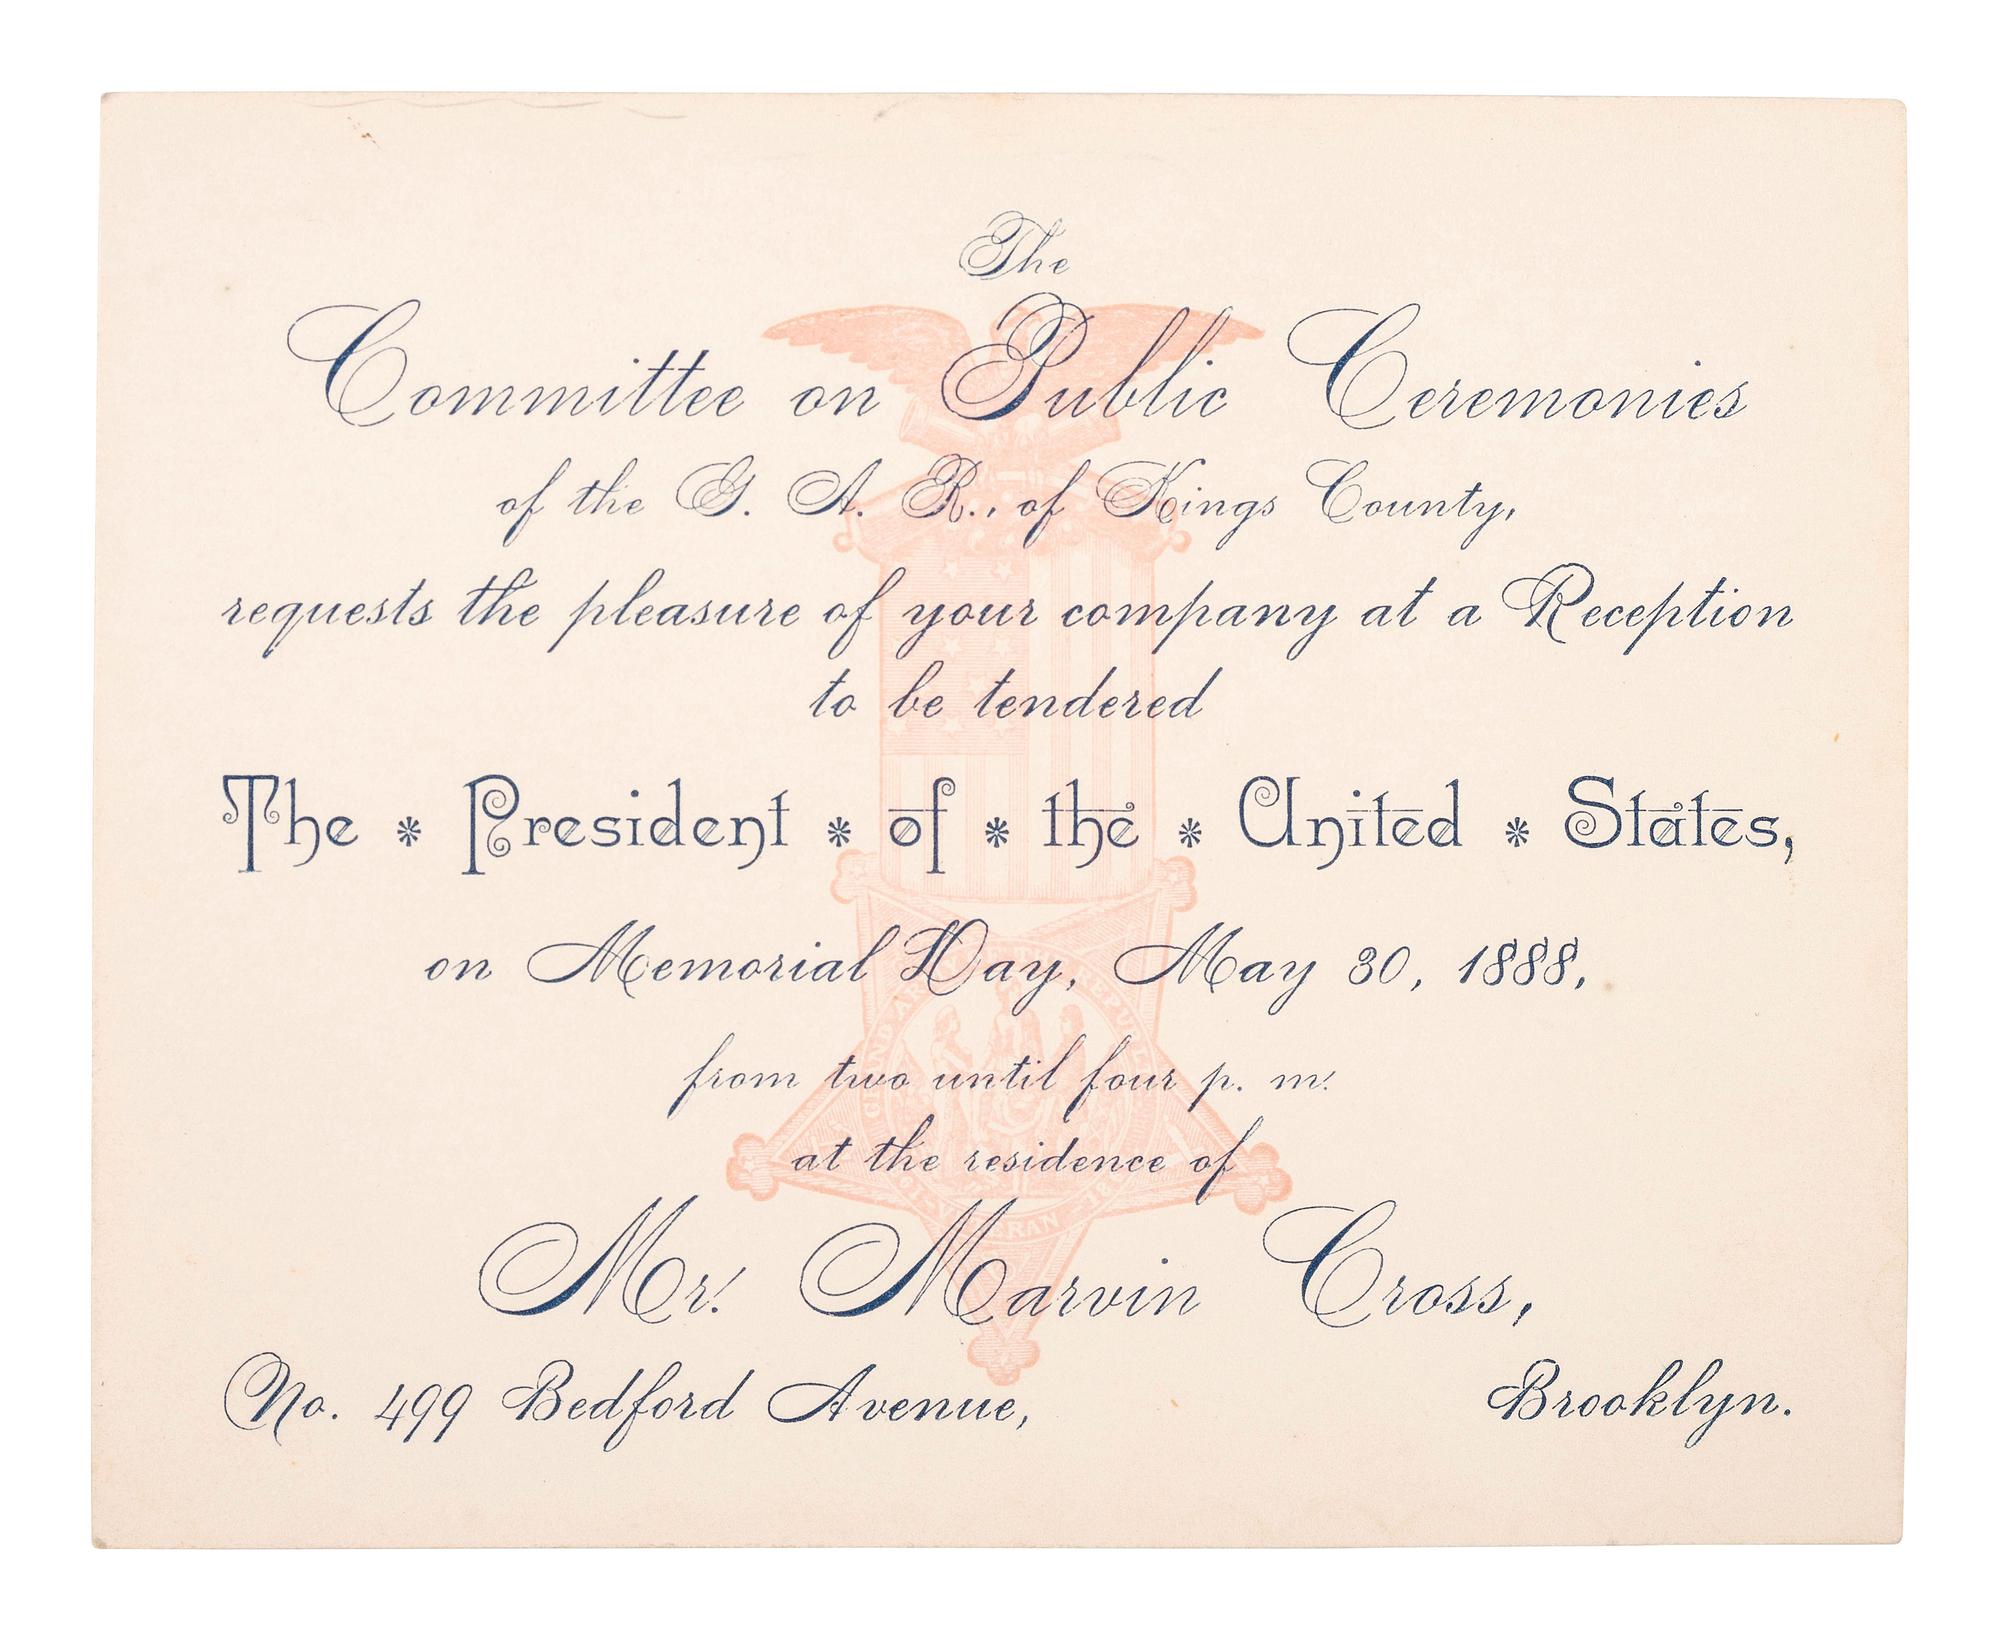 The
Committee on Public Ceremonies
of the G. A. R., of Kings County,
requests the pleasure of your company at a Reception
to be tendered
The * President * of * the * United * States,
on Memorial Day, May 30, 1888,
from two until four p. m.
at the residence of
Mr. Marvin Cross,
No. 499 Bedford Avenue, Brooklyn.
GRAND REPUBLIC
VETERAN